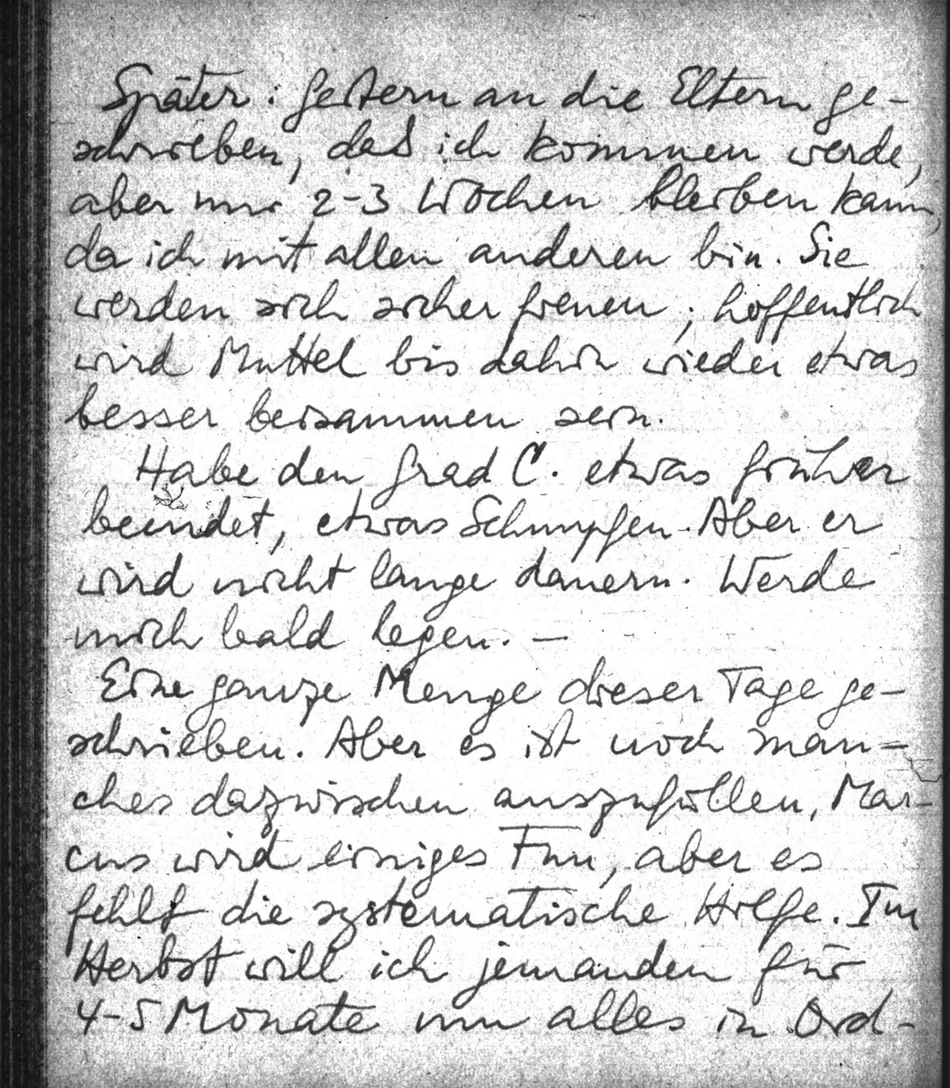 Später: Gestern an die Eltern ge-
schrieben, daß ich kommen werde,
aber nur 2-3 Wochen bleiben kann,
da ich mit allen anderen bin. Sie
werden sich sicher freuen; hoffentlich
wird Muttel bis dahin wieder etwas
besser beisammen sein.
Habe den Grad C. etwas früher
beendet, etwas Schnupfen. Aber er
wird nicht lange dauern. Werde
mich bald legen. —
Eine ganze Menge dieser Tage ge-
schrieben. Aber es ist noch man-
ches dazwischen auszufüllen, Mar-
cus wird einiges tun, aber es
fehlt die systematische Hilfe. Im
Herbst will ich jemanden für
4-5 Monate um alles in Ord-